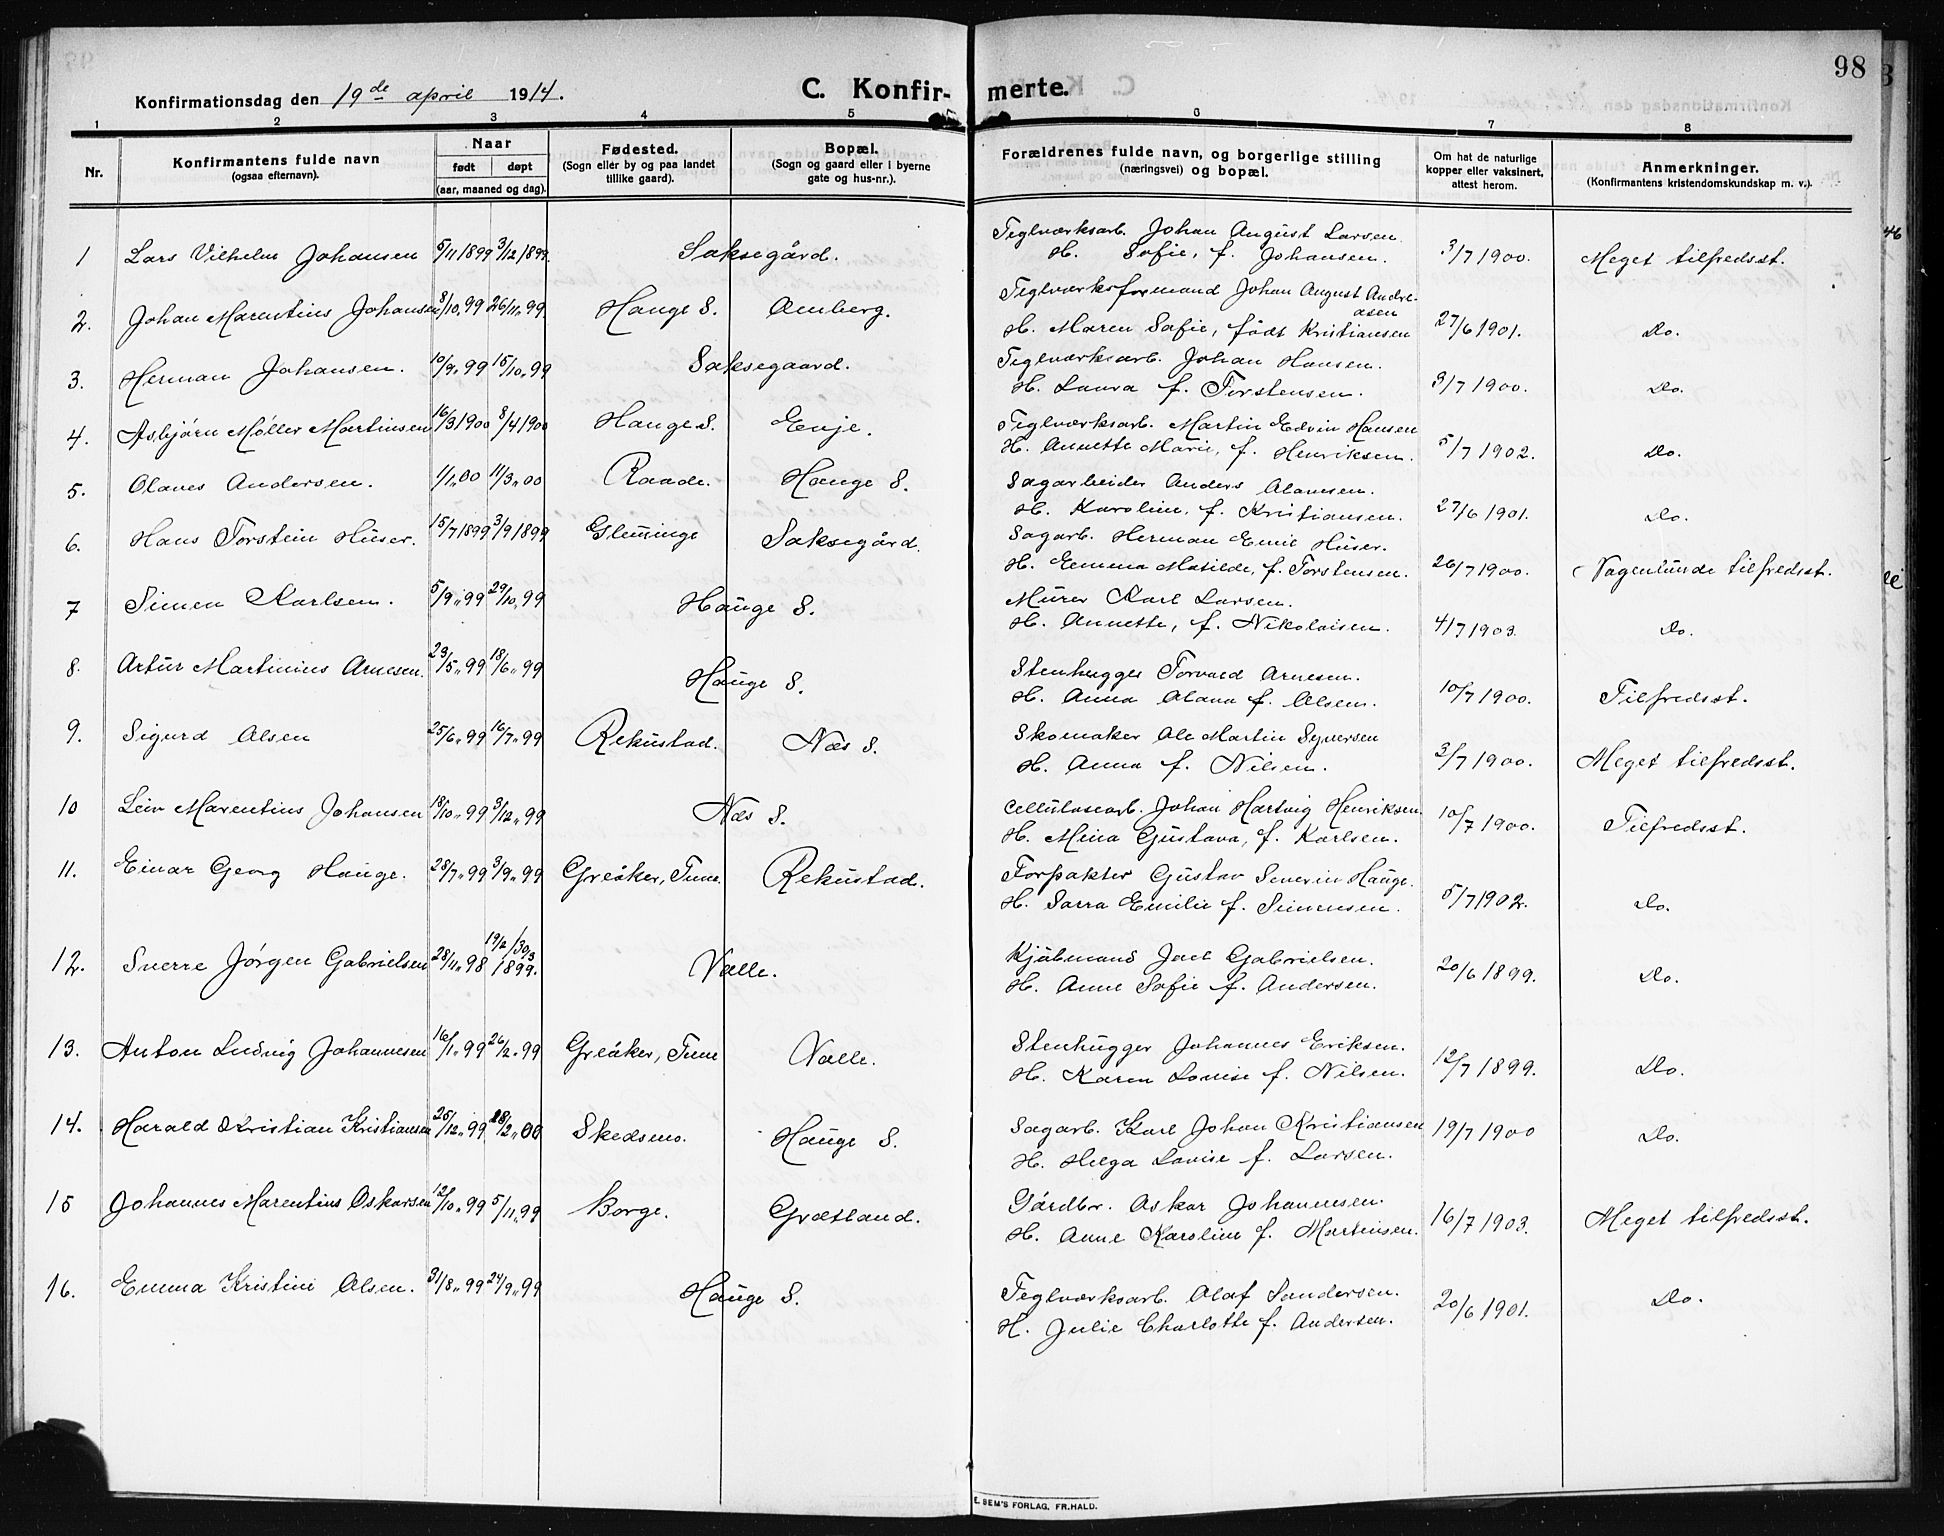 98
Konfirmationsdag den 19de april 1914.
C. Konfirmerte.
1 2 3 4 5 6 7 8
Nr.
Konfirmantens fulde navn
(ogsaa efternavn).
Naar
født døpt
(aar, maaned og dag).
Fødested.
(Sogn eller by og paa landet
tillike gaard).
Bopæl.
(Sogn og gaard eller i byerne
gate og hus-nr.).
Forældrenes fulde navn, og borgerlige stilling
(næringsvei) og bopæl.
Om hat de naturlige
kopper eller vaksinert,
attest herom.
Anmerkninger.
(Konfirmantens kristendomskundskap m. v.).
1 Lars Vilhelm Johansen 5/11 1899 3/12 1899 Saksegård. Teglværksarb. Johan August Larsen.
H. Sofie, f. Johansen. 3/7 1900. Meget tilfredsst.
2. Johan Marentius Johansen 8/10.99 26/11.99 Hauge S. Amberg. Teglværksformand Johan August Andre-
asen
H. Maren Sofie, født Kristiansen 27/6 1901. Do.
3. Herman Johansen. 10/9.99 15/10.99 Saksegaard. Teglværksarb. Johan Hansen.
H. Laura f. Torstensen. 3/7 1900. Do.
4. Asbjørn Møller Martinsen 16/3 1900 8/4 1900 Hauge S. Evje. Teglværksarb. Martin Edvin Hansen
H. Annette Marie, f. Henriksen. 5/7 1902. Do.
5. Olaves Andersen. 1/1.00 11/3.00 Raade. Hauge S. Sagarbeider Anders Olavesen.
H. Karoline, f. Kristiansen. 27/6 1901. Do.
6. Hans Torstein Huser. 15/7 1899 3/9 1899 Glemminge Saksegård. Sagarb. Herman Emil Huser.
H. Emma Matilde, f. Torstensen. 26/7 1900. Nogenlunde tilfredsst.
7 Simen Karlsen. 5/9.99 29/10.99 Hauge S. Murer Karl Larsen.
H. Annette, f. Nikolaisen. 4/7 1903. Do.
8. Artur Martinius Arnesen. 23/5.99 18/6.99 Hauge S. Stenhugger Torvald Arnesen.
H. Anna Olava f. Olsen. 10/7 1900. Tilfredsst.
9. Sigurd Olsen 25/6.99 16/7.99 Rekustad. Næs S. Skomaker Ole Martin Syversen
H. Anna f. Nilsen. 3/7 1900. Meget tilfredsst.
10 Leiv Marentius Johansen 18/10.99 3/12.99 Næs S. Cellulosearb. Johan Hartvig Henriksen.
H. Mina Gustava, f. Karlsen. 10/7 1900. Tilfredsst.
11. Einar Georg Hauge. 28/7.99 3/9.99 Greåker, Tune. Rekustad. Forpakter Gustav Severin Hauge.
H. Sarra Emilie f. Simensen. 5/7 1902. Do.
12. Sverre Jørgen Gabrielsen 28/11.98 19/2 / 30/3 1899. Valle. Kjøbmand Joel Gabrielsen.
H. Anne Sofie f. Andersen. 20/6 1899. Do.
13. Anton Ludvig Johannesen 16/1.99 26/2.99 Greåker, Tune Valle. Stenhugger Johannes Eriksen.
H. Karen Lovise f. Nilsen. 12/7 1899. Do.
14. Harald Kristian Kristiansen 25/12.99 18/2.00 Skedsmo. Hauge S. Sagarb. Karl Johan Kristiansen
H. Helga Lovise f. Larsen. 19/7 1900 Do.
15 Johannes Marentius Oskarsen 12/10.99 5/11.99 Borge. Grætland. Gårdbr. Oskar Johannesen.
H. Anne Karoline f. Martinsen. 16/7 1903. Meget tilfredsst.
16. Emma Kristine Olsen. 31/8.99 24/9.99 Hauge S. Teglværksarb. Olaf Sandersen.
H. Julie Charlotte f. Andersen. 20/6 1901. Do.
E. SEM'S FORLAG, FR.HALD.